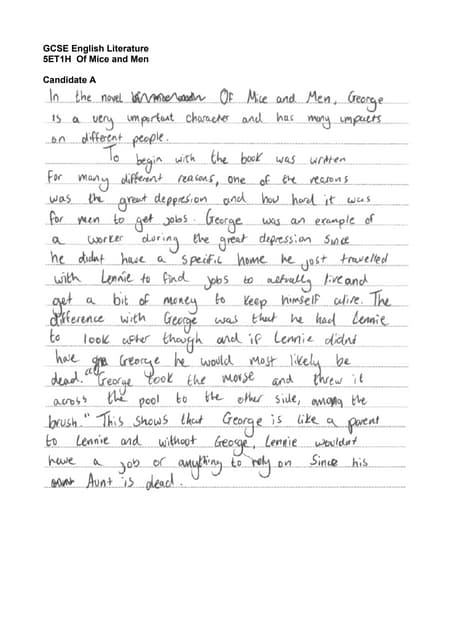 GCSE English Literature
5ET1H Of Mice and Men
Candidate A
In the novel Of Mice and Men, George
is a very important character and has many impacts
on different people.
To begin with the book was written
for many different reasons, one of the reasons
was the great deppresion and how hard it was
for men to get jobs. George was an example of
a worker during the great depression since
he didnt have a specific home he just travelled
with Lennie to find jobs to actually live and
get a bit of money to keep himself alive. The
difference with George was that he had Lennie
to look after though and if Lennie didnt
have George he would most likely be
dead. "George took the morse and threw it
across the pool to the other side, among the
brush." This shows that George is like a parent
to Lennie and without George, Lennie wouldnt
have a job or anything to rely on since his
Aunt is dead.